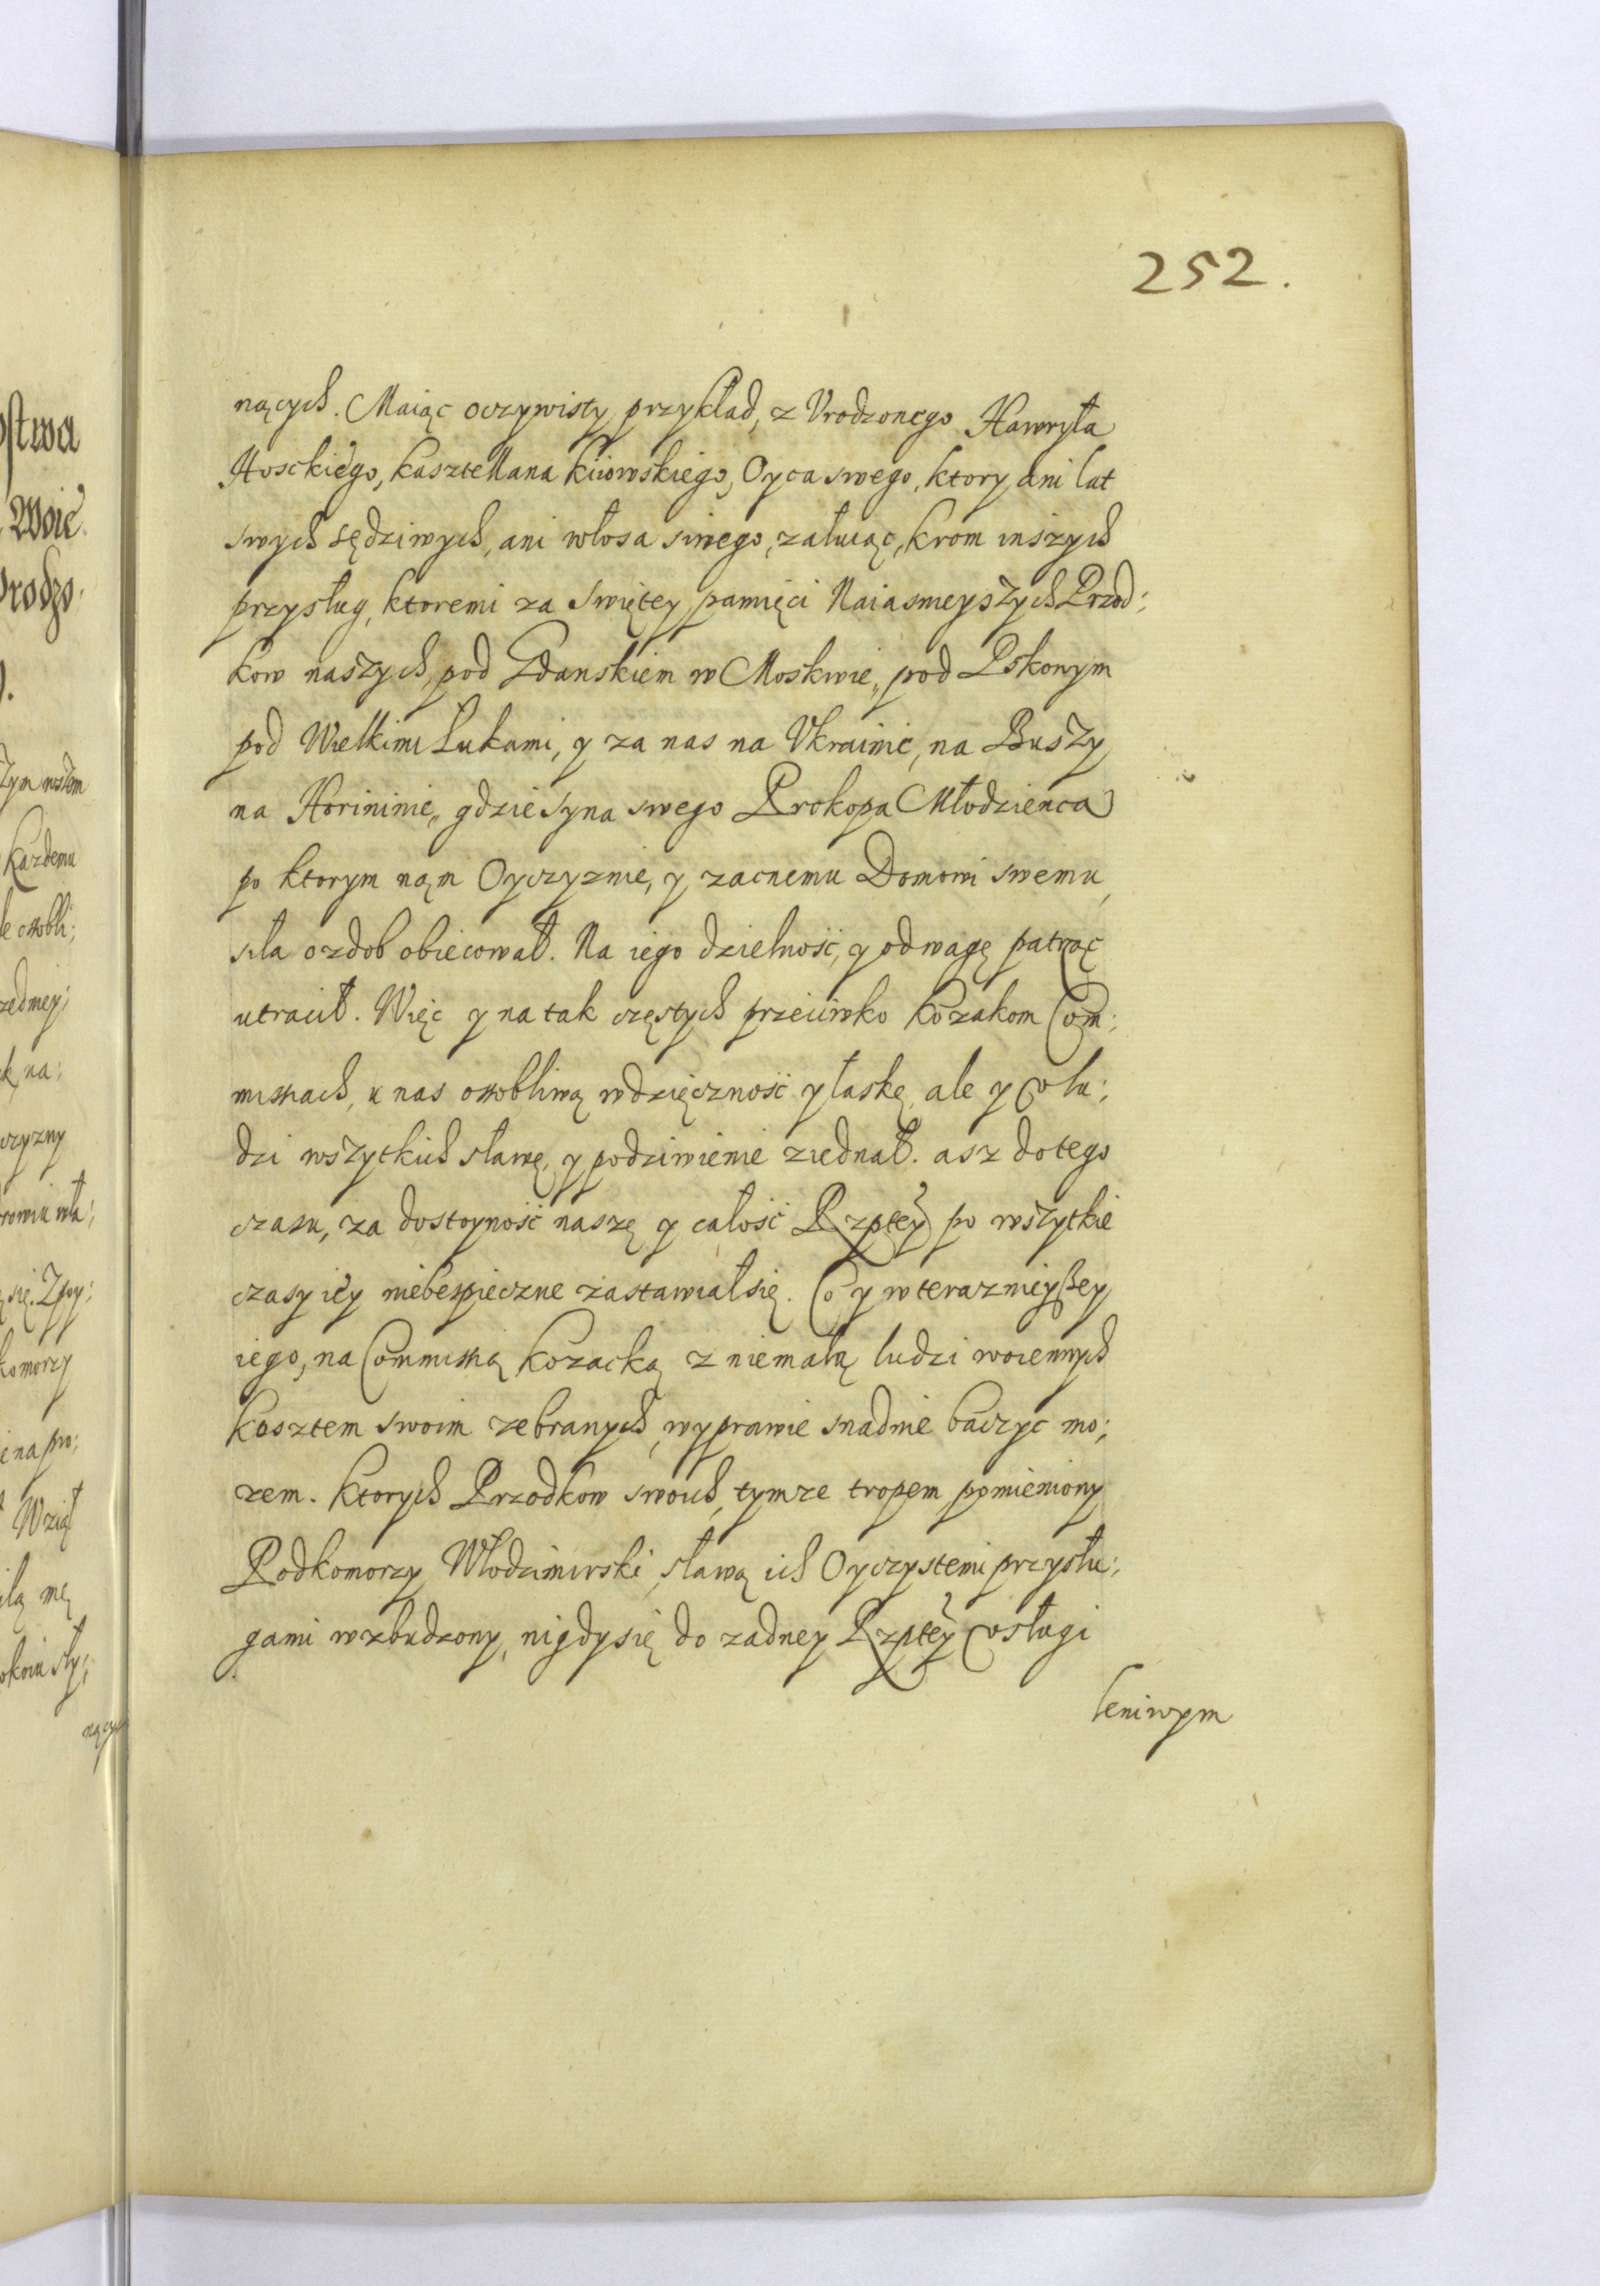 252.
nących. Maiąc oczywisty przykład, z Vrodzonego Hawryła
Hosckiego, kasztellana kiiowskiego, Oyca swego, ktory ani lat
swych sędziwych, ani włosa siwego, załuiąc, krom inszych
przysług, ktoremi za swiętey pamięci Naiasnieyszych Przod;
kow naszych, pod Gdanskiem w Moskwie, pod Pskowym
pod Wielkimi Łukami, y za nas na Vkrainie, na Buszy
na Horininie, gdzie syna swego Prokopa Młodzienca
po ktorym nąm Oyczyznie, y zacnemu Domowi swemu,
siła ozdob obiecował. Na iego dzielność, y odwagę patrząc
utracił. Więc y na tak częstych przeciwko kozakom Com;
missiach, u nas ossobliwą wdzięczność y łaskę, ale y v lu;
dzi wszytkich sławę, y podziwienie ziednał. asz do tego
czasu, za dostoyność naszę y całość Rzptey po wszytkie
czasy iey niebespieczne zastawiał się. Co y w teraznieyszey
iego, na Commissią kozacką z niemałą ludzi woiennych
kosztem swoim zebranych, wyprawie snadnie baczyc mo;
zem. ktorych Przodkow swoich, tymze tropem pomieniony
Podkomorzy Włodzimirski, sławą ich Oyczystemi przysłu;
gami wzbudzony, nigdy się do zadney Rzptey vsługi
leniwym